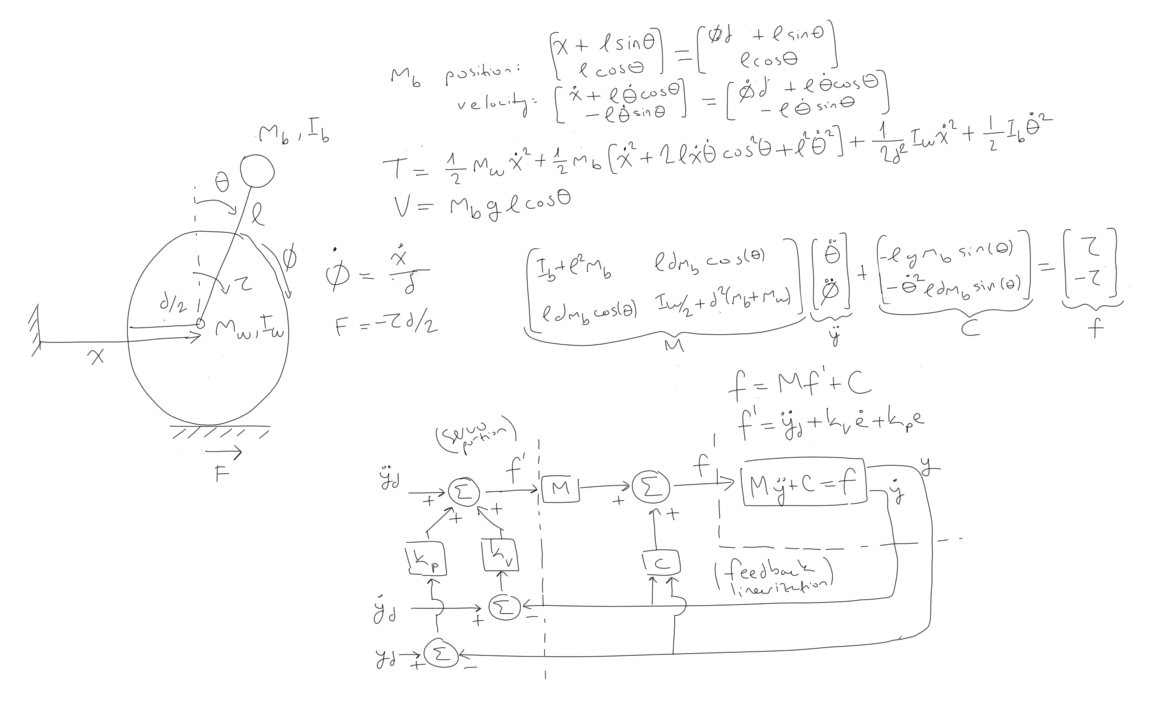 M_b position: [x + ℓsinθ; ℓcosθ] = [ϕd + ℓsinθ; ℓcosθ]
velocity: [ẋ + ℓθ̇cosθ; -ℓθ̇sinθ] = [ϕ̇d + ℓθ̇cosθ; -ℓθ̇sinθ]
T = 1/2 M_w ẋ² + 1/2 m_b [ẋ² + 2ℓẋθ̇ cos²θ + ℓ²θ̇²] + 1/2d² I_w ẋ² + 1/2 I_b θ̇²
V = M_b g ℓ cosθ
M_b, I_b
θ
ℓ
ϕ
τ
d/2
M_w, I_w
x
F
ϕ̇ = ẋ/d
F = -τd/2
[I_b + ℓ²m_b ℓdm_b cos(θ); ℓdm_b cos(θ) I_w/2 + d²(m_b + M_w)] [θ̈; ϕ̈] + [-ℓgm_b sin(θ); -θ̇²ℓdm_b sin(θ)] = [τ; -τ]
M ÿ C f
f = Mf' + C
f' = ÿ_d + k_v ė + k_p e
(servo
portion)
ÿ_d + Σ f' M + Σ f Mÿ + C = f y
+ + + ẏ
k_p k_v C
(feedback
linearization)
ẏ_d + Σ -
y_d + Σ -